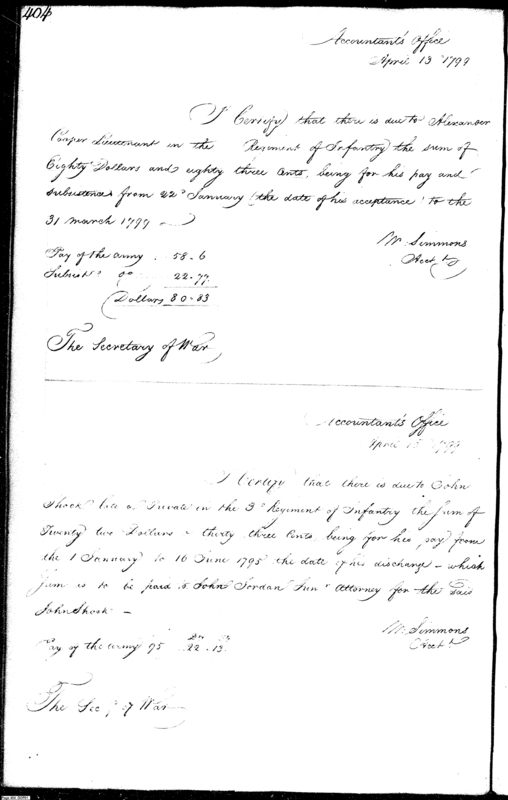 404
Accountant's Office
April 13 1799
I Certify that there is due to Alexander
Cooper Lieutenant in the Regiment of Infantry the sum of
Eighty Dollars and eighty three Cents, being for his pay and
subsistence from 22d January (the date of his acceptance) to the
31 March 1799
Wm Simmons
Acctt
Pay of the army . 58.6
Subsistce do 22.77
Dollars 80.83
The Secretary of War
Accountant's Office
April 13 1799
I Certify that there is due to John
Shock late a Private in the 3d Regiment of Infantry the Sum of
Twenty two Dollars & thirty three Cents, being for his pay from
the 1 January to 16 June 1795 the date of his discharge - which
sum is to be paid to John Jordan Junr Attorney for the said
John Shock -
Wm Simmons
Acctt
Pay of the army 95 22.13
The Secy of War